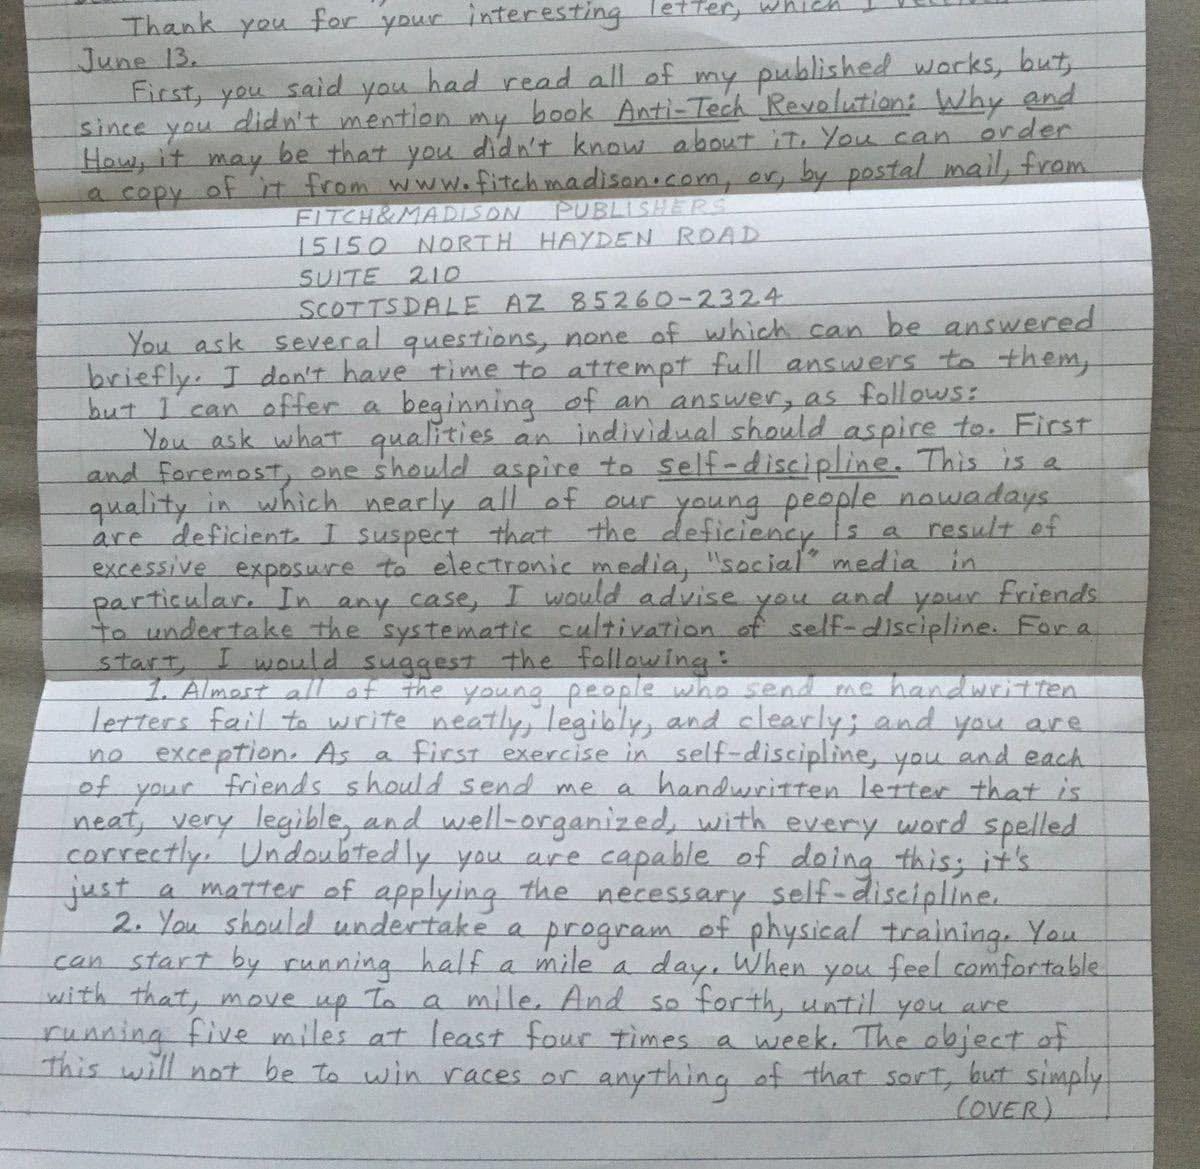 Thank you for your interesting letter, which I
June 13.
First, you said you had read all of my published works, but,
since you didn't mention my book Anti-Tech Revolution: Why and
How, it may be that you didn't know about it. You can order
a copy of it from www.fitchmadison.com, or, by postal mail, from
FITCH&MADISON PUBLISHERS
15150 NORTH HAYDEN ROAD
SUITE 210
SCOTTSDALE AZ 85260-2324
You ask several questions, none of which can be answered
briefly. I don't have time to attempt full answers to them,
but I can offer a beginning of an answer, as follows:
You ask what qualities an individual should aspire to. First
and foremost, one should aspire to self-discipline. This is a
quality in which nearly all of our young people nowadays
are deficient. I suspect that the deficiency is a result of
excessive exposure to electronic media, "social" media in
particular. In any case, I would advise you and your friends
to undertake the systematic cultivation of self-discipline. For a
start, I would suggest the following:
1. Almost all of the young people who send me handwritten
letters fail to write neatly, legibly, and clearly; and you are
no exception. As a first exercise in self-discipline, you and each
of your friends should send me a handwritten letter that is
neat, very legible, and well-organized, with every word spelled
correctly. Undoubtedly you are capable of doing this; it's
just a matter of applying the necessary self-discipline.
2. You should undertake a program of physical training. You
can start by running half a mile a day. When you feel comfortable
with that, move up to a mile. And so forth, until you are
running five miles at least four times a week. The object of
this will not be to win races or anything of that sort, but simply
(OVER)